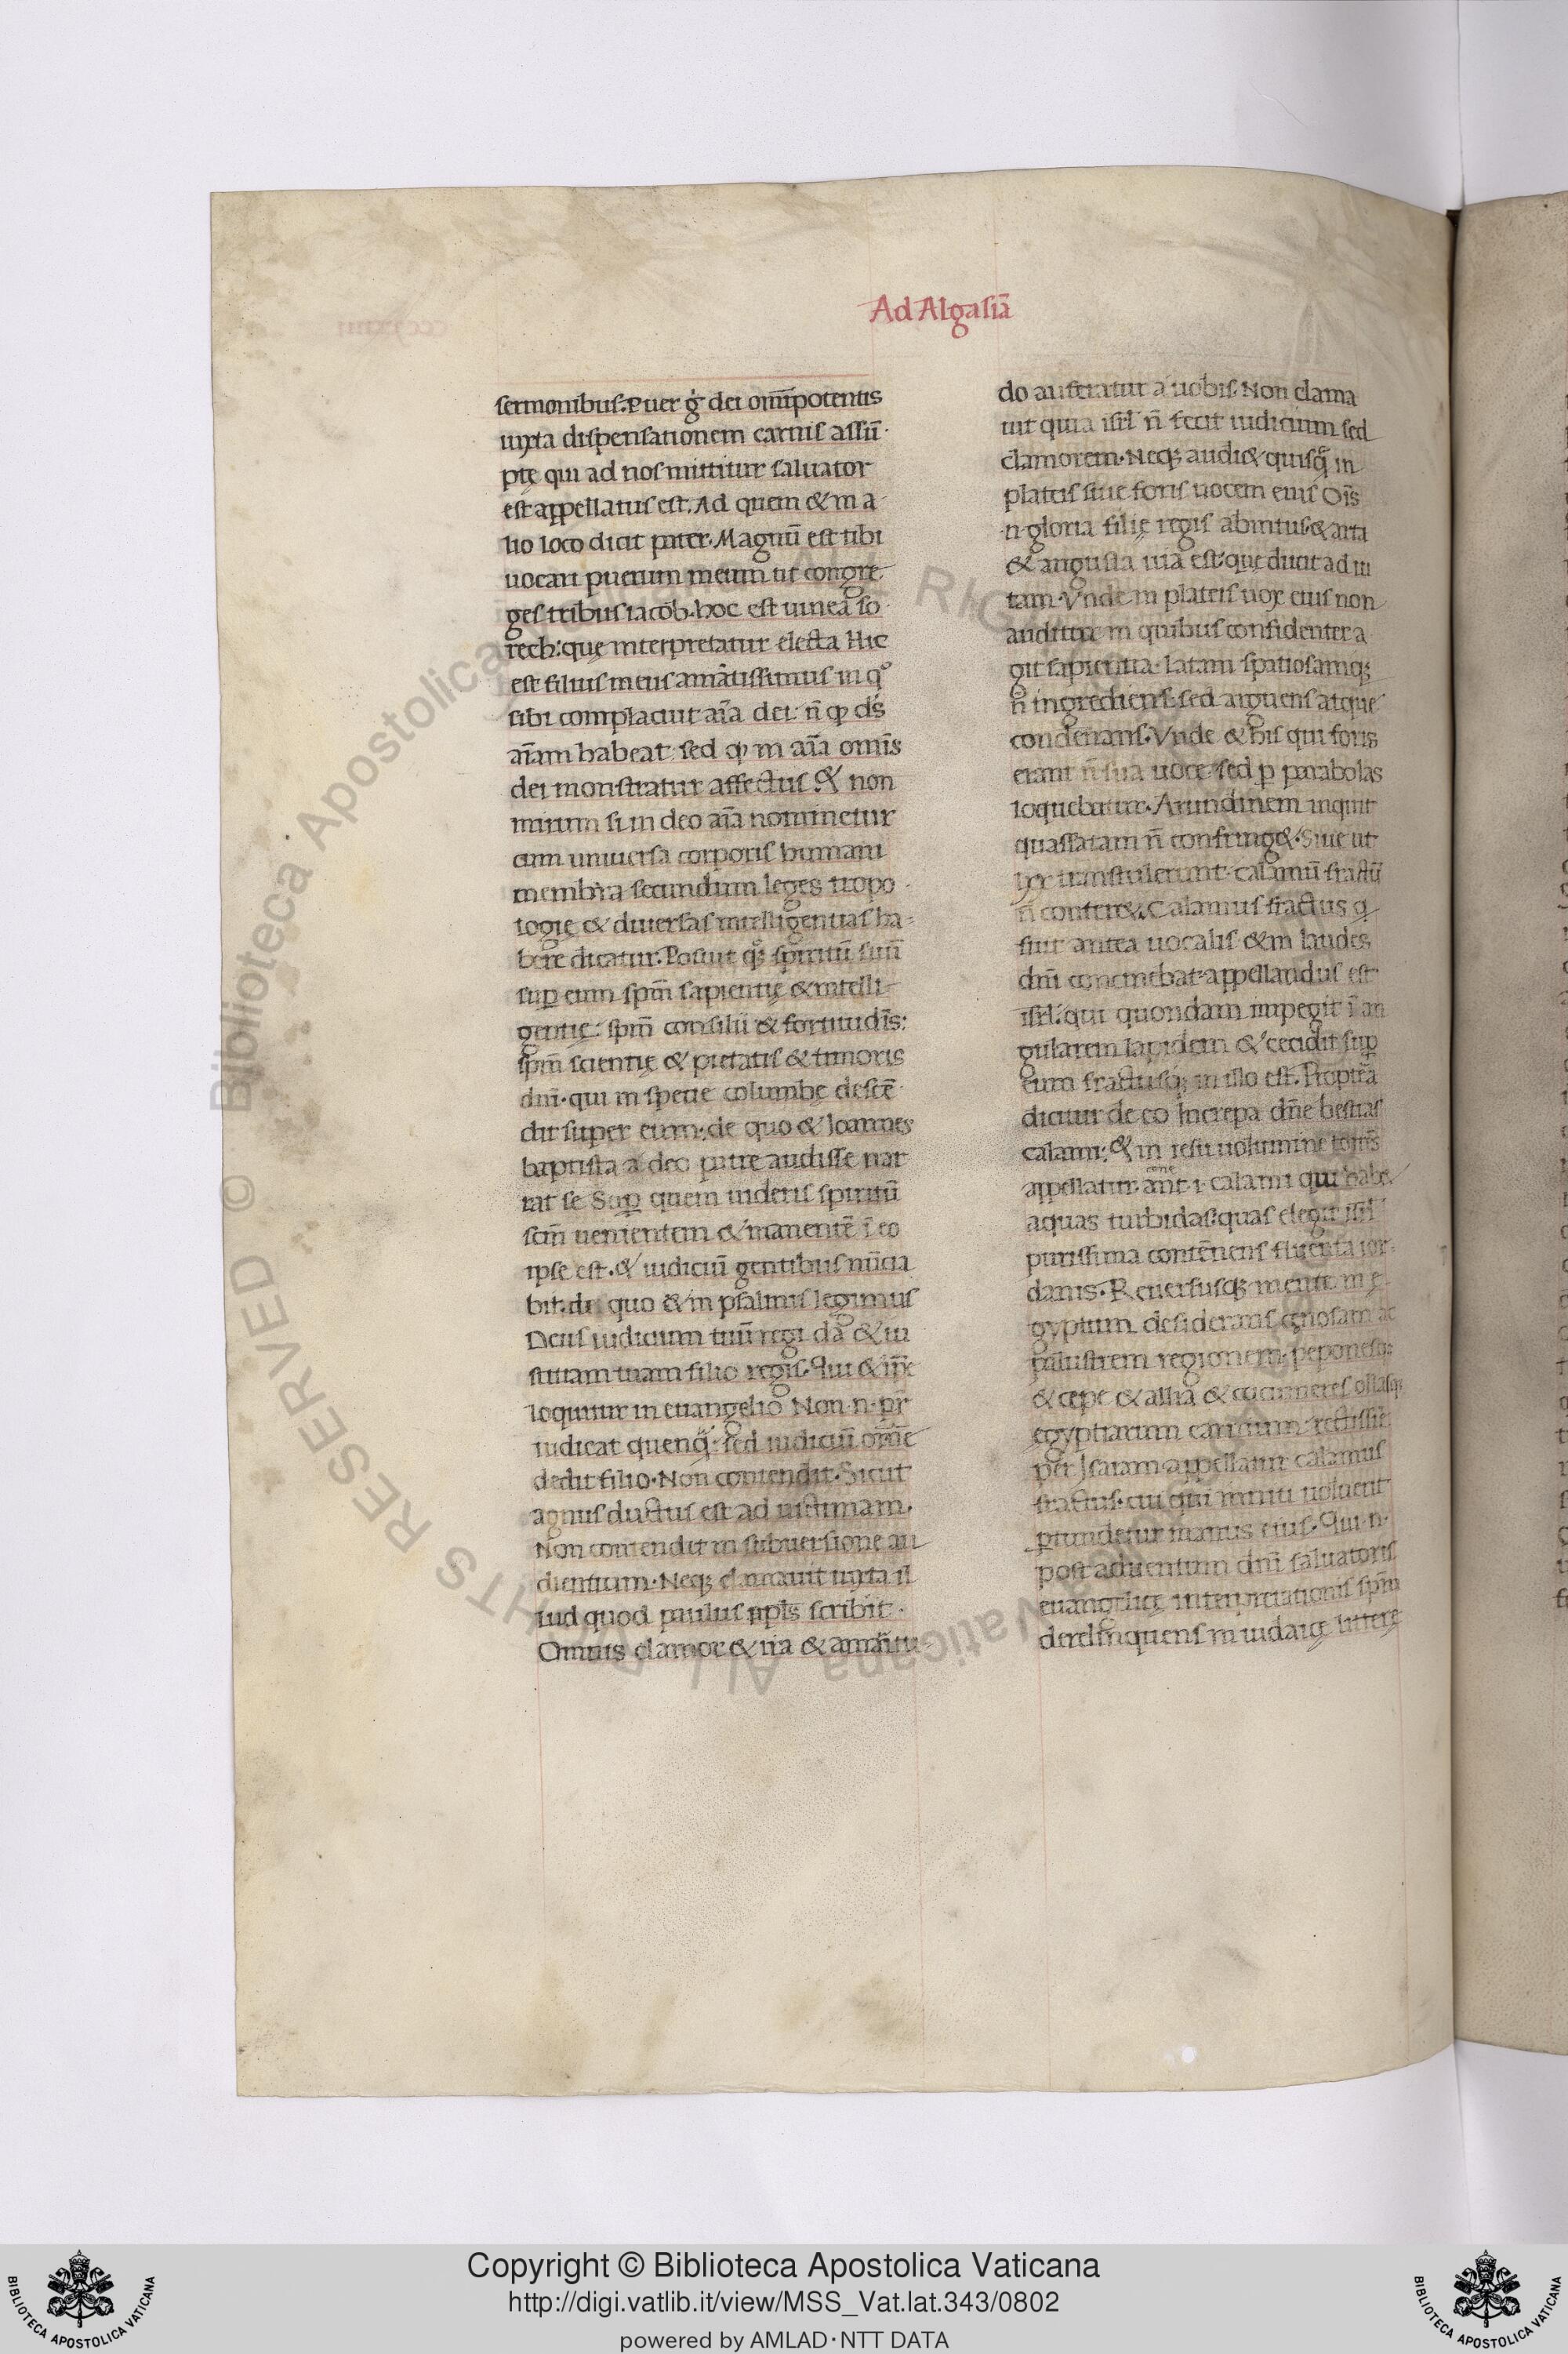 Ad Algasiā
sermonibus. Puer g̊ dei om̄ipotentis
iuxta dispensationem carnis assū
ptę qui ad nos mittitur saluator
est appellatus est. Ad quem & in a
lio loco dicit pater. Magnū est tibi
uocari puerum meum ut congre
ges tribus iacob. hoc est uinea so
rech: quę interpretatur electa Hic
est filius meus amātissimus in qͦ
sibi complacuit aīa dei. n̄ ꝙ dś
aīam habeat: sed ꝙ in aīa omīs
dei monstratur affectus. & non
mirum si in deo aīa nominetur
cum uniuersa corporis humani
membra secundum leges tropo
logię & diuersas intelligentias ha
bere dicatur. Posuit qꝫ spiritū suū
suꝑ eum spm̄ sapientię & intelli
gentię: spm̄ consilii & fortitudīs:
spm̄ scientię & pietatis & timoris
dnī. qui in specie columbę descē
dit super eum: de quo & Ioannes
baptista a deo patre audisse nar
rat se Suꝑ quem uideris spiritū
scm̄ uenientem & manentē ī eo
ipse est. & iudiciū gentibus nūcia
bit. de quo & in psalmis legimus
Deus iudicium tuū regi da & iu
stitiam tuam filio regis. Qui & ip̄e
loquitur in euangelio Non .n. pr̄
iudicat quenq̄: sed iudiciū om̄e
dedit filio. Non contendit. Sicut
agnus ductus est ad uictimam.
Non contendit in subuersione au
dientium. Neqꝫ clamauit iuxta il
lud quod paulus apl̄s scribit.
Omnis clamor & ira & amaritu
do auferatur a uobis. Non clama
uit quia isrl̄ n̄ fecit iudicium sed
clamorem. Neqꝫ audi& quisq̄ in
plateis siue foris uocem eius Oīs
.n. gloria filię regis abintus. & arta
& angusta uia est: quę ducit ad ui
tam. Vnde in plateis uox eius non
auditur in quibus confidenter a
git sapientia. latam spatiosamqꝫ
n̄ ingrediens: sed arguens atque
condēnans. Vnde & his qui foris
erant n̄ sua uoce: sed ꝑ parabolas
loquebatur. Arundinem inquit
quassatam n̄ confring&. Siue ut
lxx transtulerunt. calamū fractū
n̄ conter&. Calamus fractus q
fuit antea uocalis & in laudes
dnī concinebat. appellandus est
isrl̄: qui quondam impegit ī an
gularem lapidem & cecidit suꝑ
eum fractusqꝫ in illo est. Proptr̄a
dicitur de eo Increpa dn̄e bestias
calami: & in iesu uolumine torrēs
appellatur. cane .i. calami qui habe
aquas turbidas: quas elegit isrl̄
purissima contēnens fluenta ior
danis. Reuersusqꝫ mente in ę
gyptum desiderans cęnosam ac
palustrem regionem. peponesqꝫ
& cepe & allia & cucumeres ollasqꝫ
ęgyptiarum carnium. rectissīe
per Isaiam appellatur calamus
fractus. cui qui inniti uoluerit
ꝑtundetur manus eius. Qui .n.
post aduentum dnī saluatoris
euangelicę interpretationis spm̄
derelinquens in iudaicę litterę
Copyright © Biblioteca Apostolica Vaticana
http://digi.vatlib.it/view/MSS_Vat.lat.343/0802
powered by AMLAD·NTT DATA
BIBLIOTECA APOSTOLICA VATICANA
BIBLIOTECA APOSTOLICA VATICANA
© Biblioteca Apostolica Vaticana ALL RIGHTS RESERVED